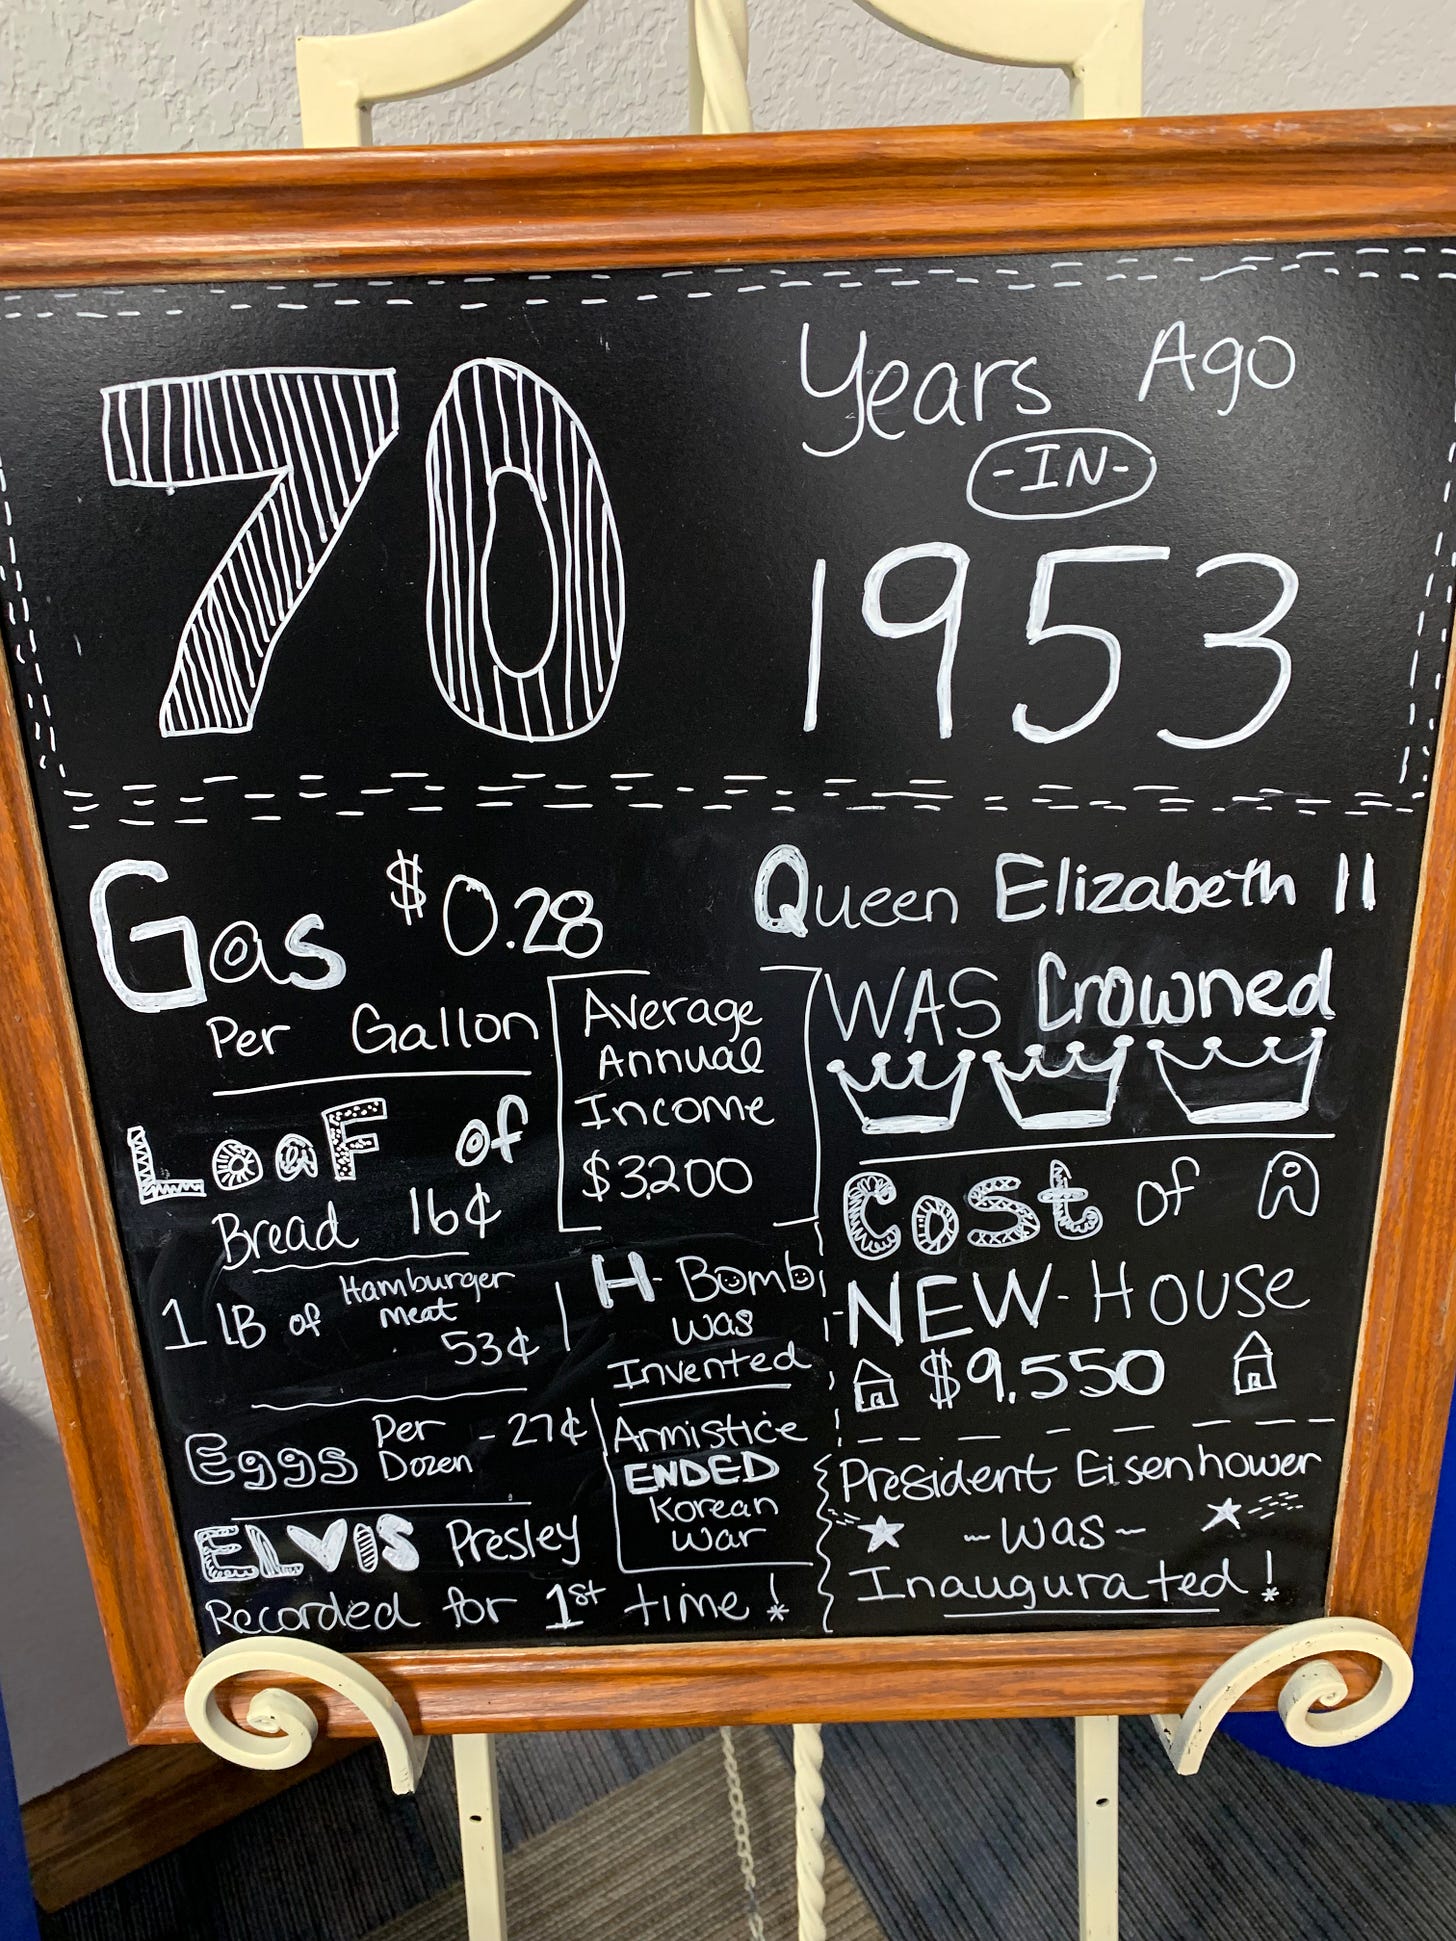 70
Years Ago
-IN-
1953
Gas $0.28
Per Gallon
Loaf of
Bread 16¢
1 LB of Hamburger
meat
53¢
Eggs Per
Dozen - 27¢
ELVIS Presley
Recorded for 1st time!
Average
Annual
Income
$3,200
H-Bomb
was
Invented
Armistice
ENDED
Korean
war
Queen Elizabeth II
WAS Crowned
Cost of A
NEW-House
$9,550
President Eisenhower
~was~
Inaugurated!